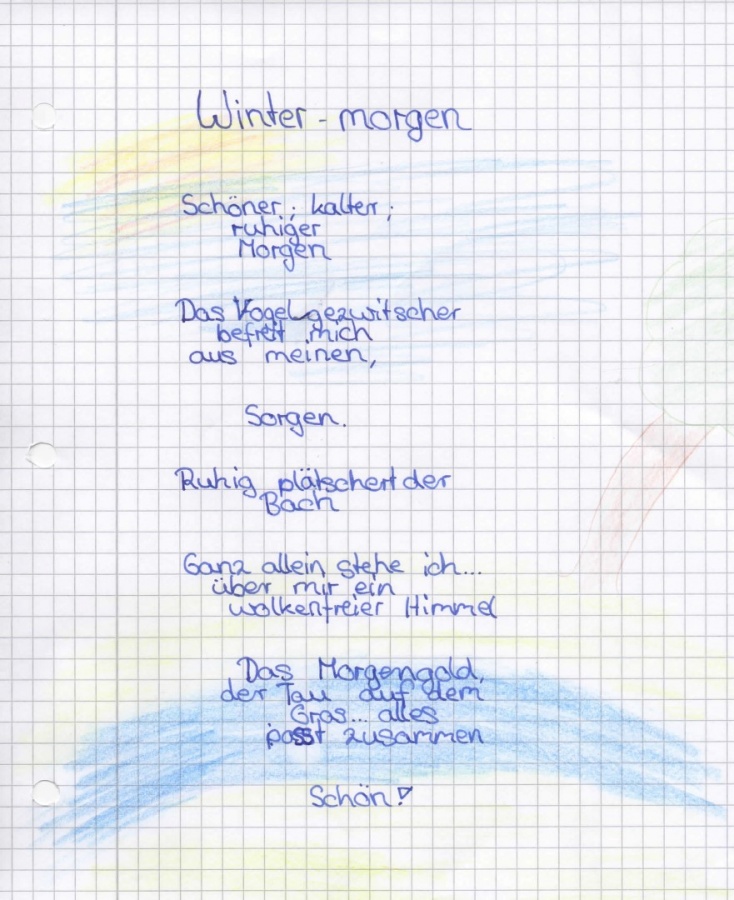 Winter - morgen
Schöner; kalter;
ruhiger
Morgen
Das Vogelgezwitscher
befreit mich
aus meinen,
Sorgen.
Ruhig plätschert der
Bach
Ganz allein stehe ich...
über mir ein
wolkenfreier Himmel
Das Morgengold,
der Tau auf dem
Gras... alles
passt zusammen
Schön!